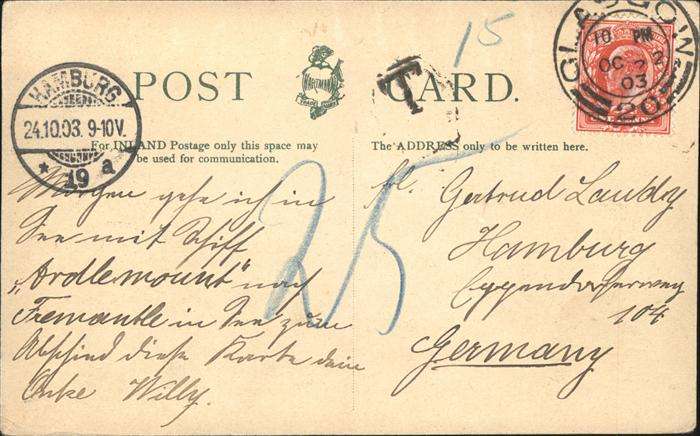 POST CARD.
HARTMANN
15
T
GLASGOW
10 PM
OC 22
03
20
HAMBURG
24.10.03. 9-10V.
* 19 a
For INLAND Postage only this space may
be used for communication.
The ADDRESS only to be written here.
25
Morgen gehe ich in
See mit Schiff
„Ardlemount" nach
Fremantle in See zum
Abschied diese Karte dein
Onke Willy.
Gertrud Laudry
Hamburg
Eppendorferweg
104
Germany